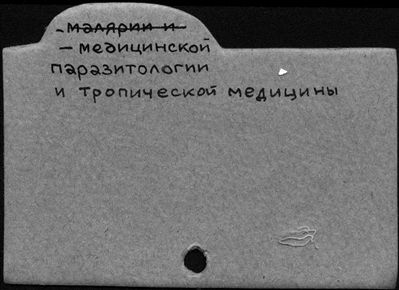 - малярии и -
- медицинской
паразитологии
и тропической медицины